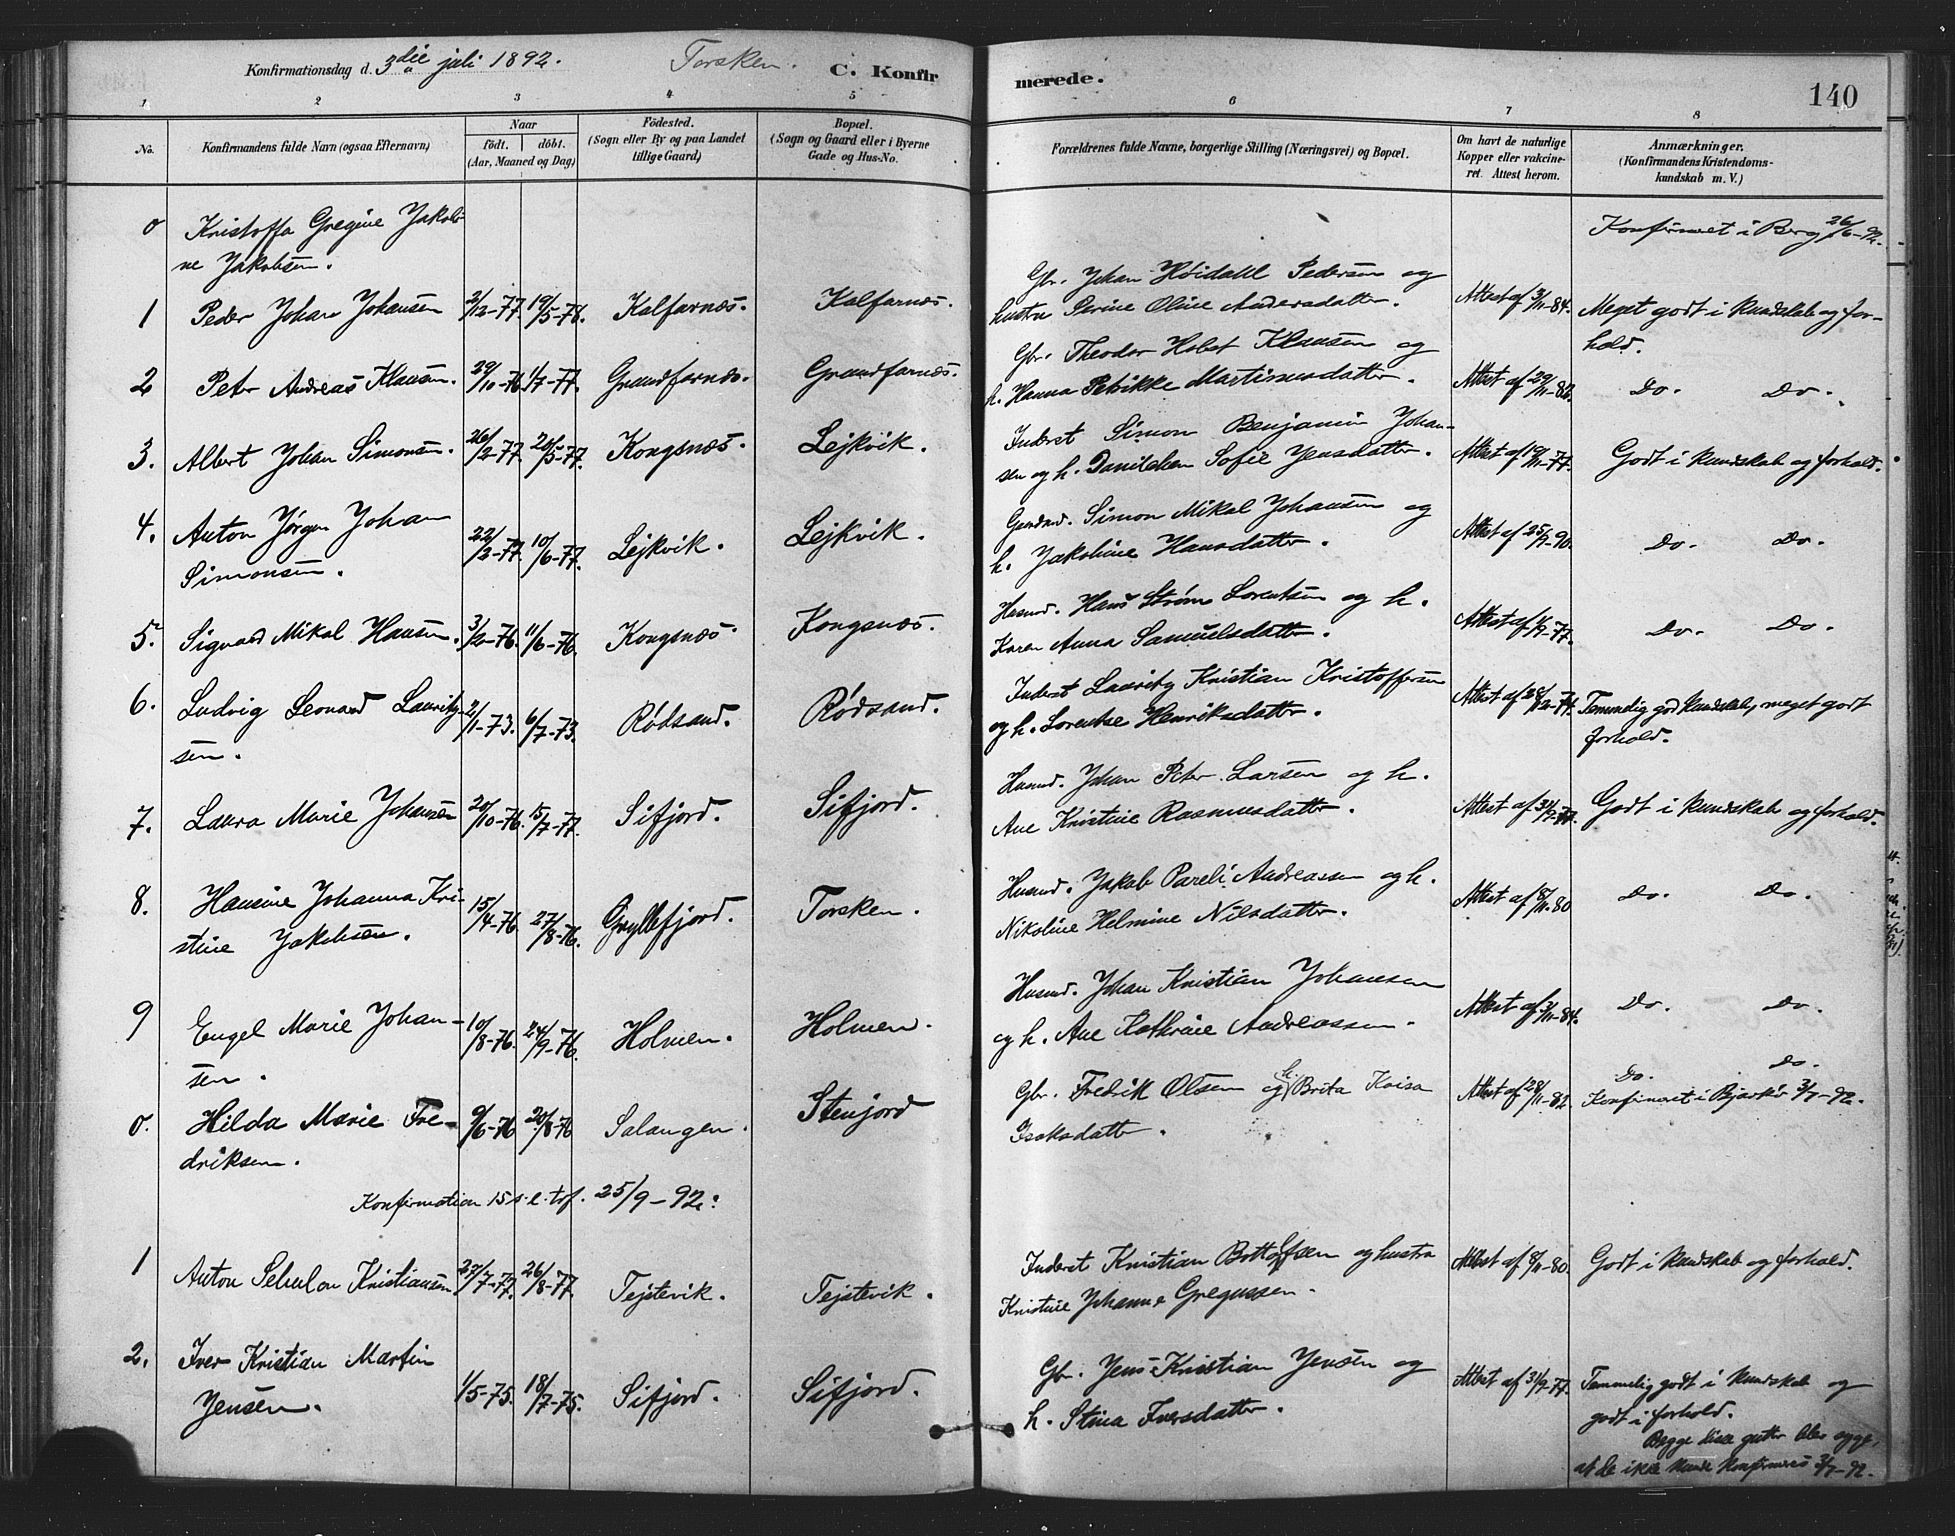 Konfirmationsdag d. 3die juli 1892. Torsken. C. Konfirmerede. 140
1 2 3 4 5 6 7 8
No. Konfirmandens fulde Navn (ogsaa Efternavn) Naar født. døbt. (Aar, Maaned og Dag) Fødested. (Sogn eller By og paa Landet tillige Gaard) Bopæl. (Sogn og Gaard eller i Byerne Gade og Hus-No.
Forældrenes fulde Navne, borgerlige Stilling (Næringsvei) og Bopæl. Om havt de naturlige Kopper eller vakcineret. Attest herom. Anmærkninger. (Konfirmandens Kristendomskundskab m. V.)
0 Kristoffa Gregine Jakobi-
ne Jakobsen. Konfirmeret i Berg 26/6-92.
1 Peder Johan Johansen 2/12-77. 19/5-78. Kalfarnæs. Kalfarnæs. Gbr. Johan Høidahl Pedersen og
hustru Serine Oline Andersdatter. Attest af 3/11-84. Meget godt i kundskab og for-
hold.
2 Peter Andreas Klausen. 29/10-76. 1/7-77. Grundfarnæs. Grundfarnæs. Gbr. Theodor Holst Klausen og
h. Hanna Petrikke Martinusdatter. Attest af 29/11-82. Do. Do.
3. Albert Johan Simonsen. 26/2-77. 20/5-77. Kongsnæs. Lejkvik. Inderst Simon Benjamin Johan-
sen og h. Danilken Sofie Jensdatter. Attest af 19/11-77. Godt i kundskab og forhold.
4. Anton Jørgen Johan
Simonsen. 22/2-77. 10/6-77. Lejkvik. Lejkvik. Simon Mikal Johansen og
h. Jakobine Hansdatter. Attest af 25/9-90. Do. Do.
5. Sigvard Mikal Hansen. 3/2-76. 11/6-76. Kongsnæs. Kongsnæs. Husmd. Hans Strøm Lorentsen og h.
Karen Anna Samuelsdatter. Do. Do.
6. Ludvig Leonard Lauritz-
sen. 2/1-73. 6/7-73. Rødsand. Rødsand. Inderst Lauritz Kristian Kristoffersen
og h. Lorentse Henriksdatter. Attest af 28/12-74. Temmelig god kundskab, meget godt
forhold.
7. Laura Marie Johansen 20/10-76. 15/7-77. Sifjord. Sifjord. Husmd. Johan Peter Larsen og h.
Ane Kristine Rasmusdatter. Godt i kundskab og forhold.
8. Hansine Johanna Kri-
stine Jakobsen. 15/4-76. 27/8-76. Gryllefjord. Torsken. Husmd. Jakob Pareli Andreassen og h.
Nikoline Helmine Nilsdatter. Attest af 8/11-80 Do. Do.
9 Engel Marie Johan-
sen. 10/8-76. 24/9-76. Holmen. Holmen. Husmd. Johan Kristian Johansen
og h. Ane Kathrine Andreassen. Attest af 3/11-84. Do. Do.
0. Hilda Marie Fre-
driksen. 9/6-76 20/8-76 Salangen. Stenjord Gbr. Fredrik Olsen og h. Brita Kaisa
Isaksdatter. Attest af 28/11-82. Do. Do.
Konfirmeret i Bjarkø 3/7-92.
Konfirmation 15 s. e. trf. 25/9-92:
1 Anton Sebulon Kristiansen 27/7-77. 26/8-77. Tejstevik. Tejstevik. Inderst Kristian Bottolfsen og hustru
Kristine Johanna Gregussen. Attest af 8/11-80. Godt i kundskab og forhold.
2. Iver Kristian Martin
Jensen. 1/5-75. 18/7-75. Sifjord. Sifjord. Gbr. Jens Kristian Jensen og
h. Stina Iversdatter. Attest af 3/9-77. Temmelig godt i kundskab og
godt i forhold.
Begge disse gutter blev syge,
at de ikke kunde konfirmeres 3/7-92.